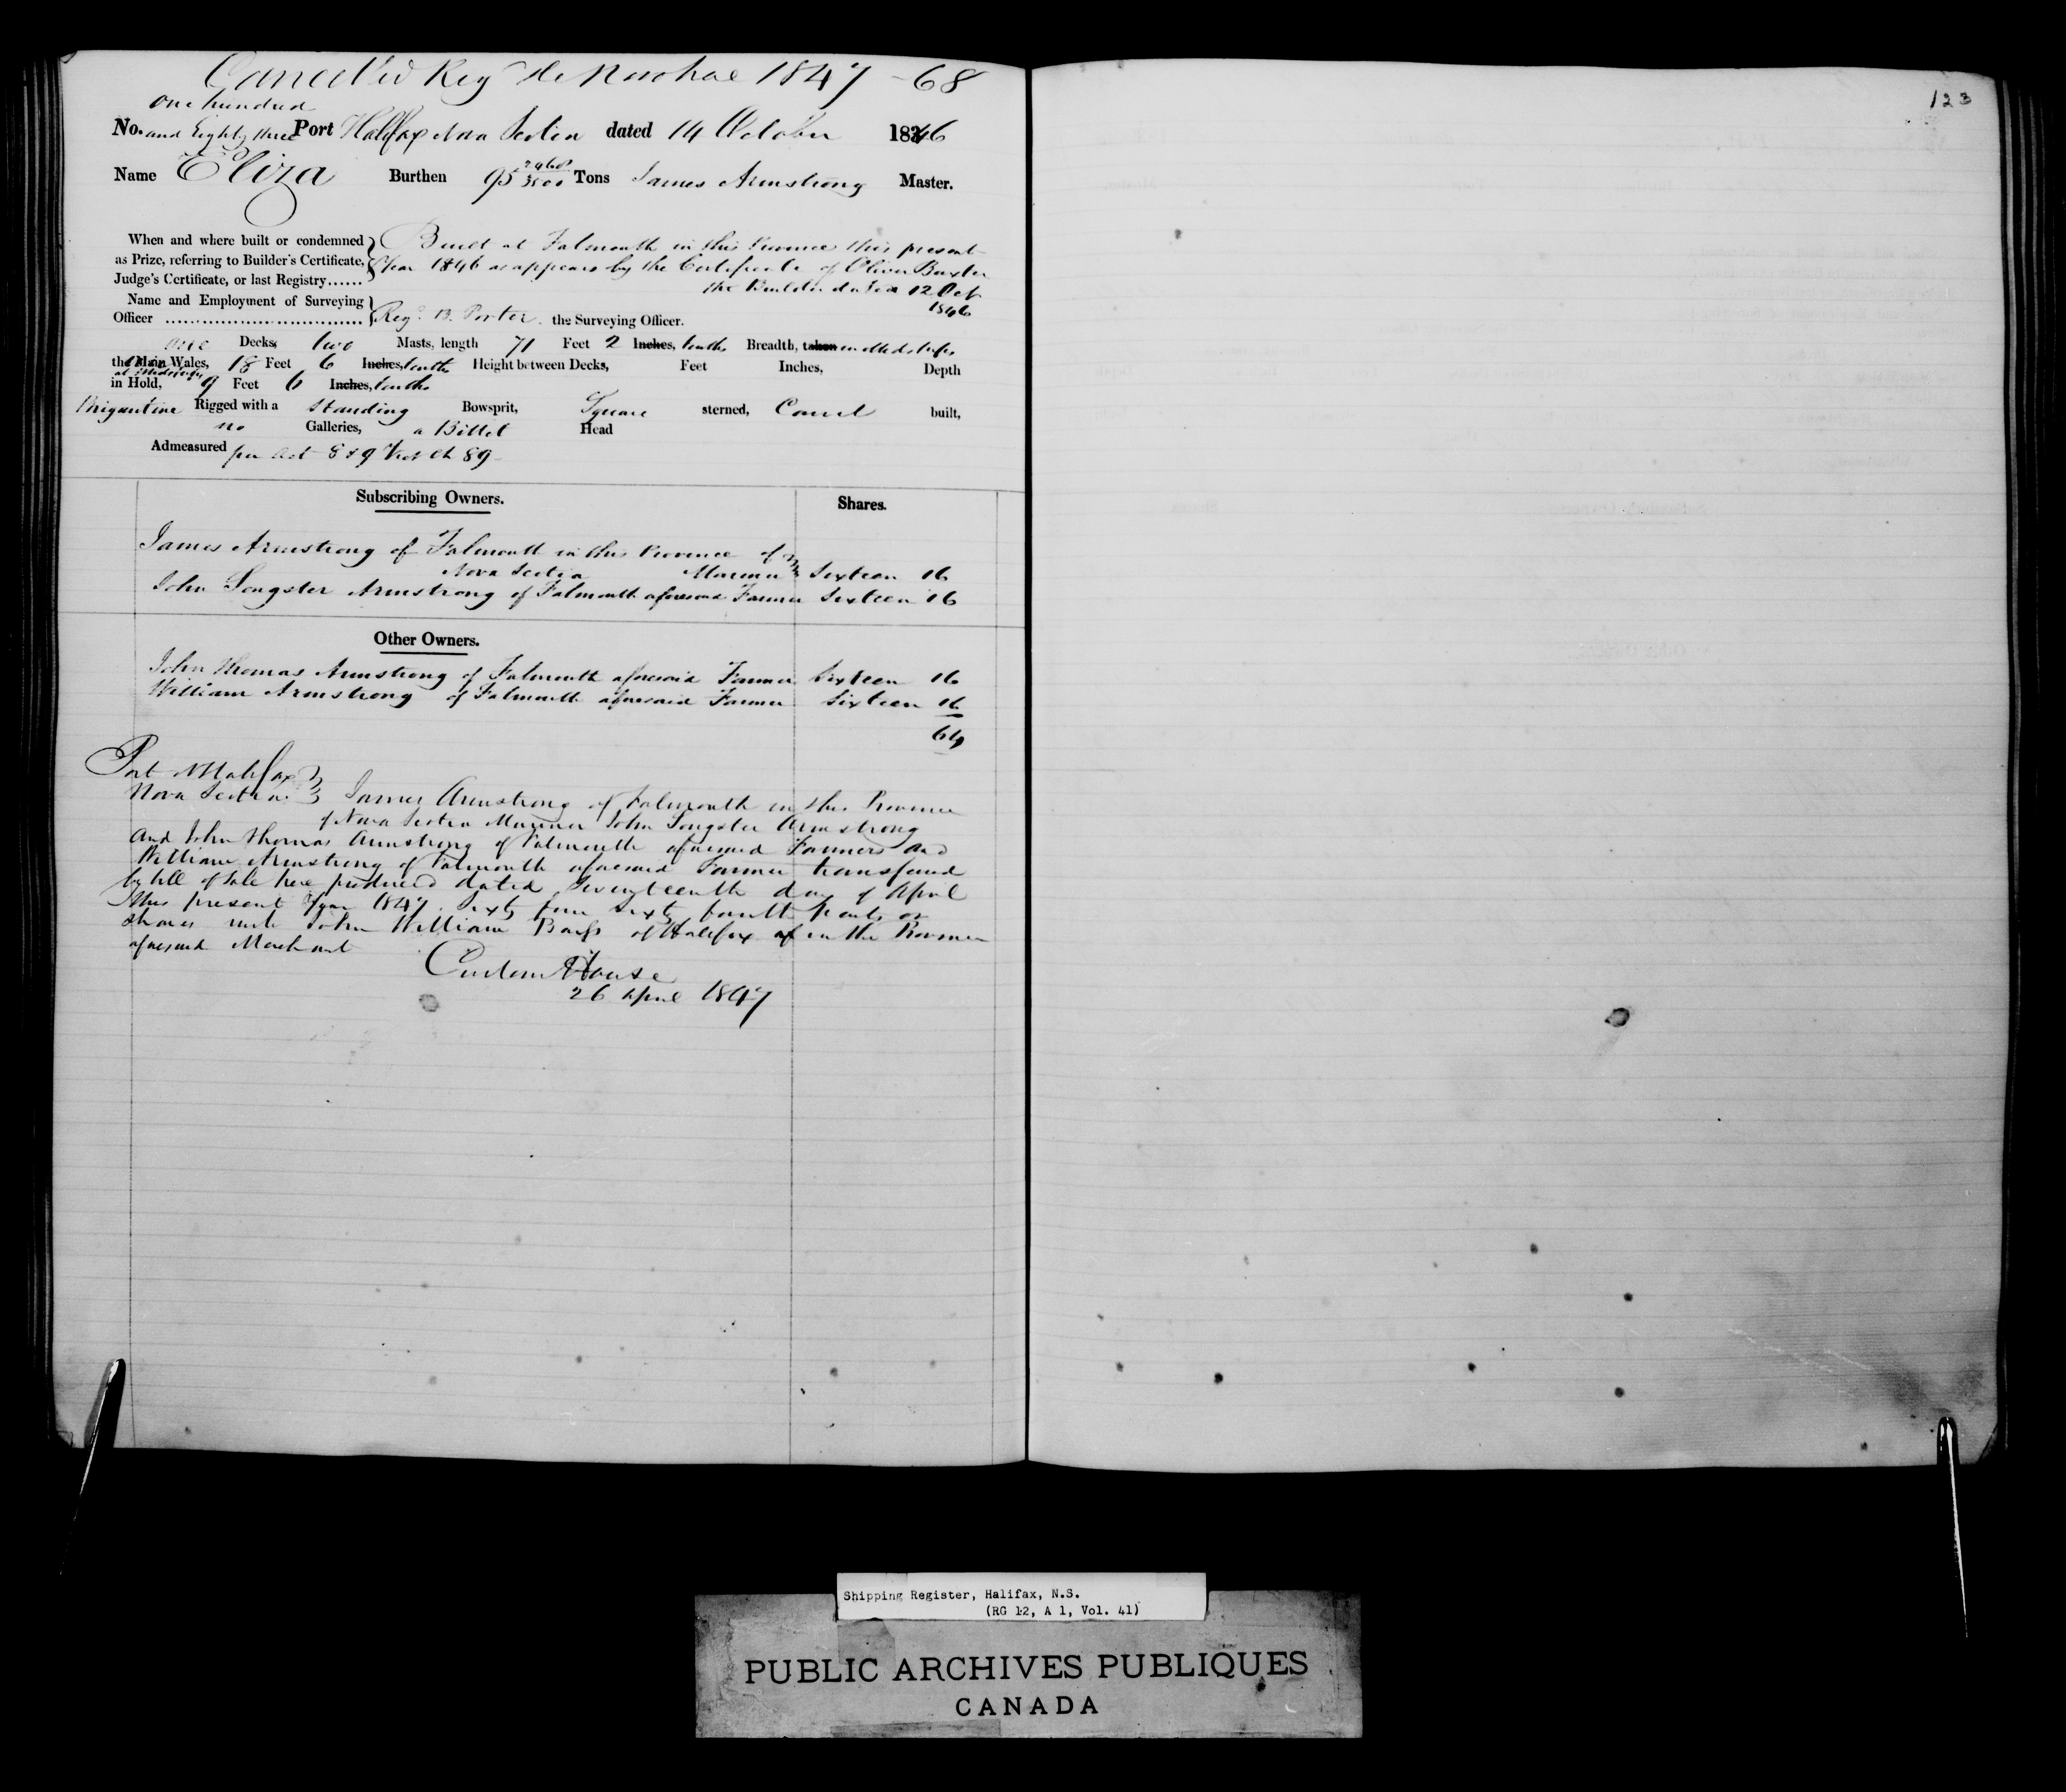 Cancel'd Reg De Novo Hal 1847 - 68
123
one hundred
No. and Eighty three Port Halifax Nova Scotia dated 14 October 1846
Name Eliza Burthen 95 2468/3500 Tons James Armstrong Master.
When and where built or condemned as Prize, referring to Builder's Certificate, Judge's Certificate, or last Registry......
Built at Falmouth in this Province this present
Year 1846 as appears by the Certificate of Oliver Baxter
the Builder dated 12 Oct
1846
Name and Employment of Surveying Officer ................................ B. Porter. the Surveying Officer.
one Decks, two Masts, length 71 Feet 2 Inches, tenths Breadth, taken in midships
the Main Wales, 18 Feet 6 Inches, tenths Height between Decks, Feet Inches, Depth
at Midships
in Hold, 9 Feet 6 Inches, tenths
Brigantine Rigged with a Standing Bowsprit, Square sterned, Carvel built,
no Galleries, a Billet Head
Admeasured per Act 8 & 9 Vict Ch 89
Subscribing Owners. Shares.
James Armstrong of Falmouth in this Province of
Nova Scotia Mariner Sixteen 16
John Songster Armstrong of Falmouth aforesaid Farmer Sixteen 16
Other Owners.
John Thomas Armstrong of Falmouth aforesaid Farmer Sixteen 16
William Armstrong of Falmouth aforesaid Farmer Sixteen 16
64
Port Halifax
Nova Scotia. James Armstrong of Falmouth in this Province
of Nova Scotia Mariner John Songster Armstrong
and John Thomas Armstrong of Falmouth aforesaid Farmers and
William Armstrong of Falmouth aforesaid Farmer transferred
by bill of Sale here produced dated Seventeenth day of April
this present Year 1847. Sixty four Sixty fourth parts or
shares unto John William Barss of Halifax in the Province
aforesaid Merchant
Custom House
26 April 1847
Shipping Register, Halifax, N.S.
(RG 12, A 1, Vol. 41)
PUBLIC ARCHIVES PUBLIQUES
CANADA